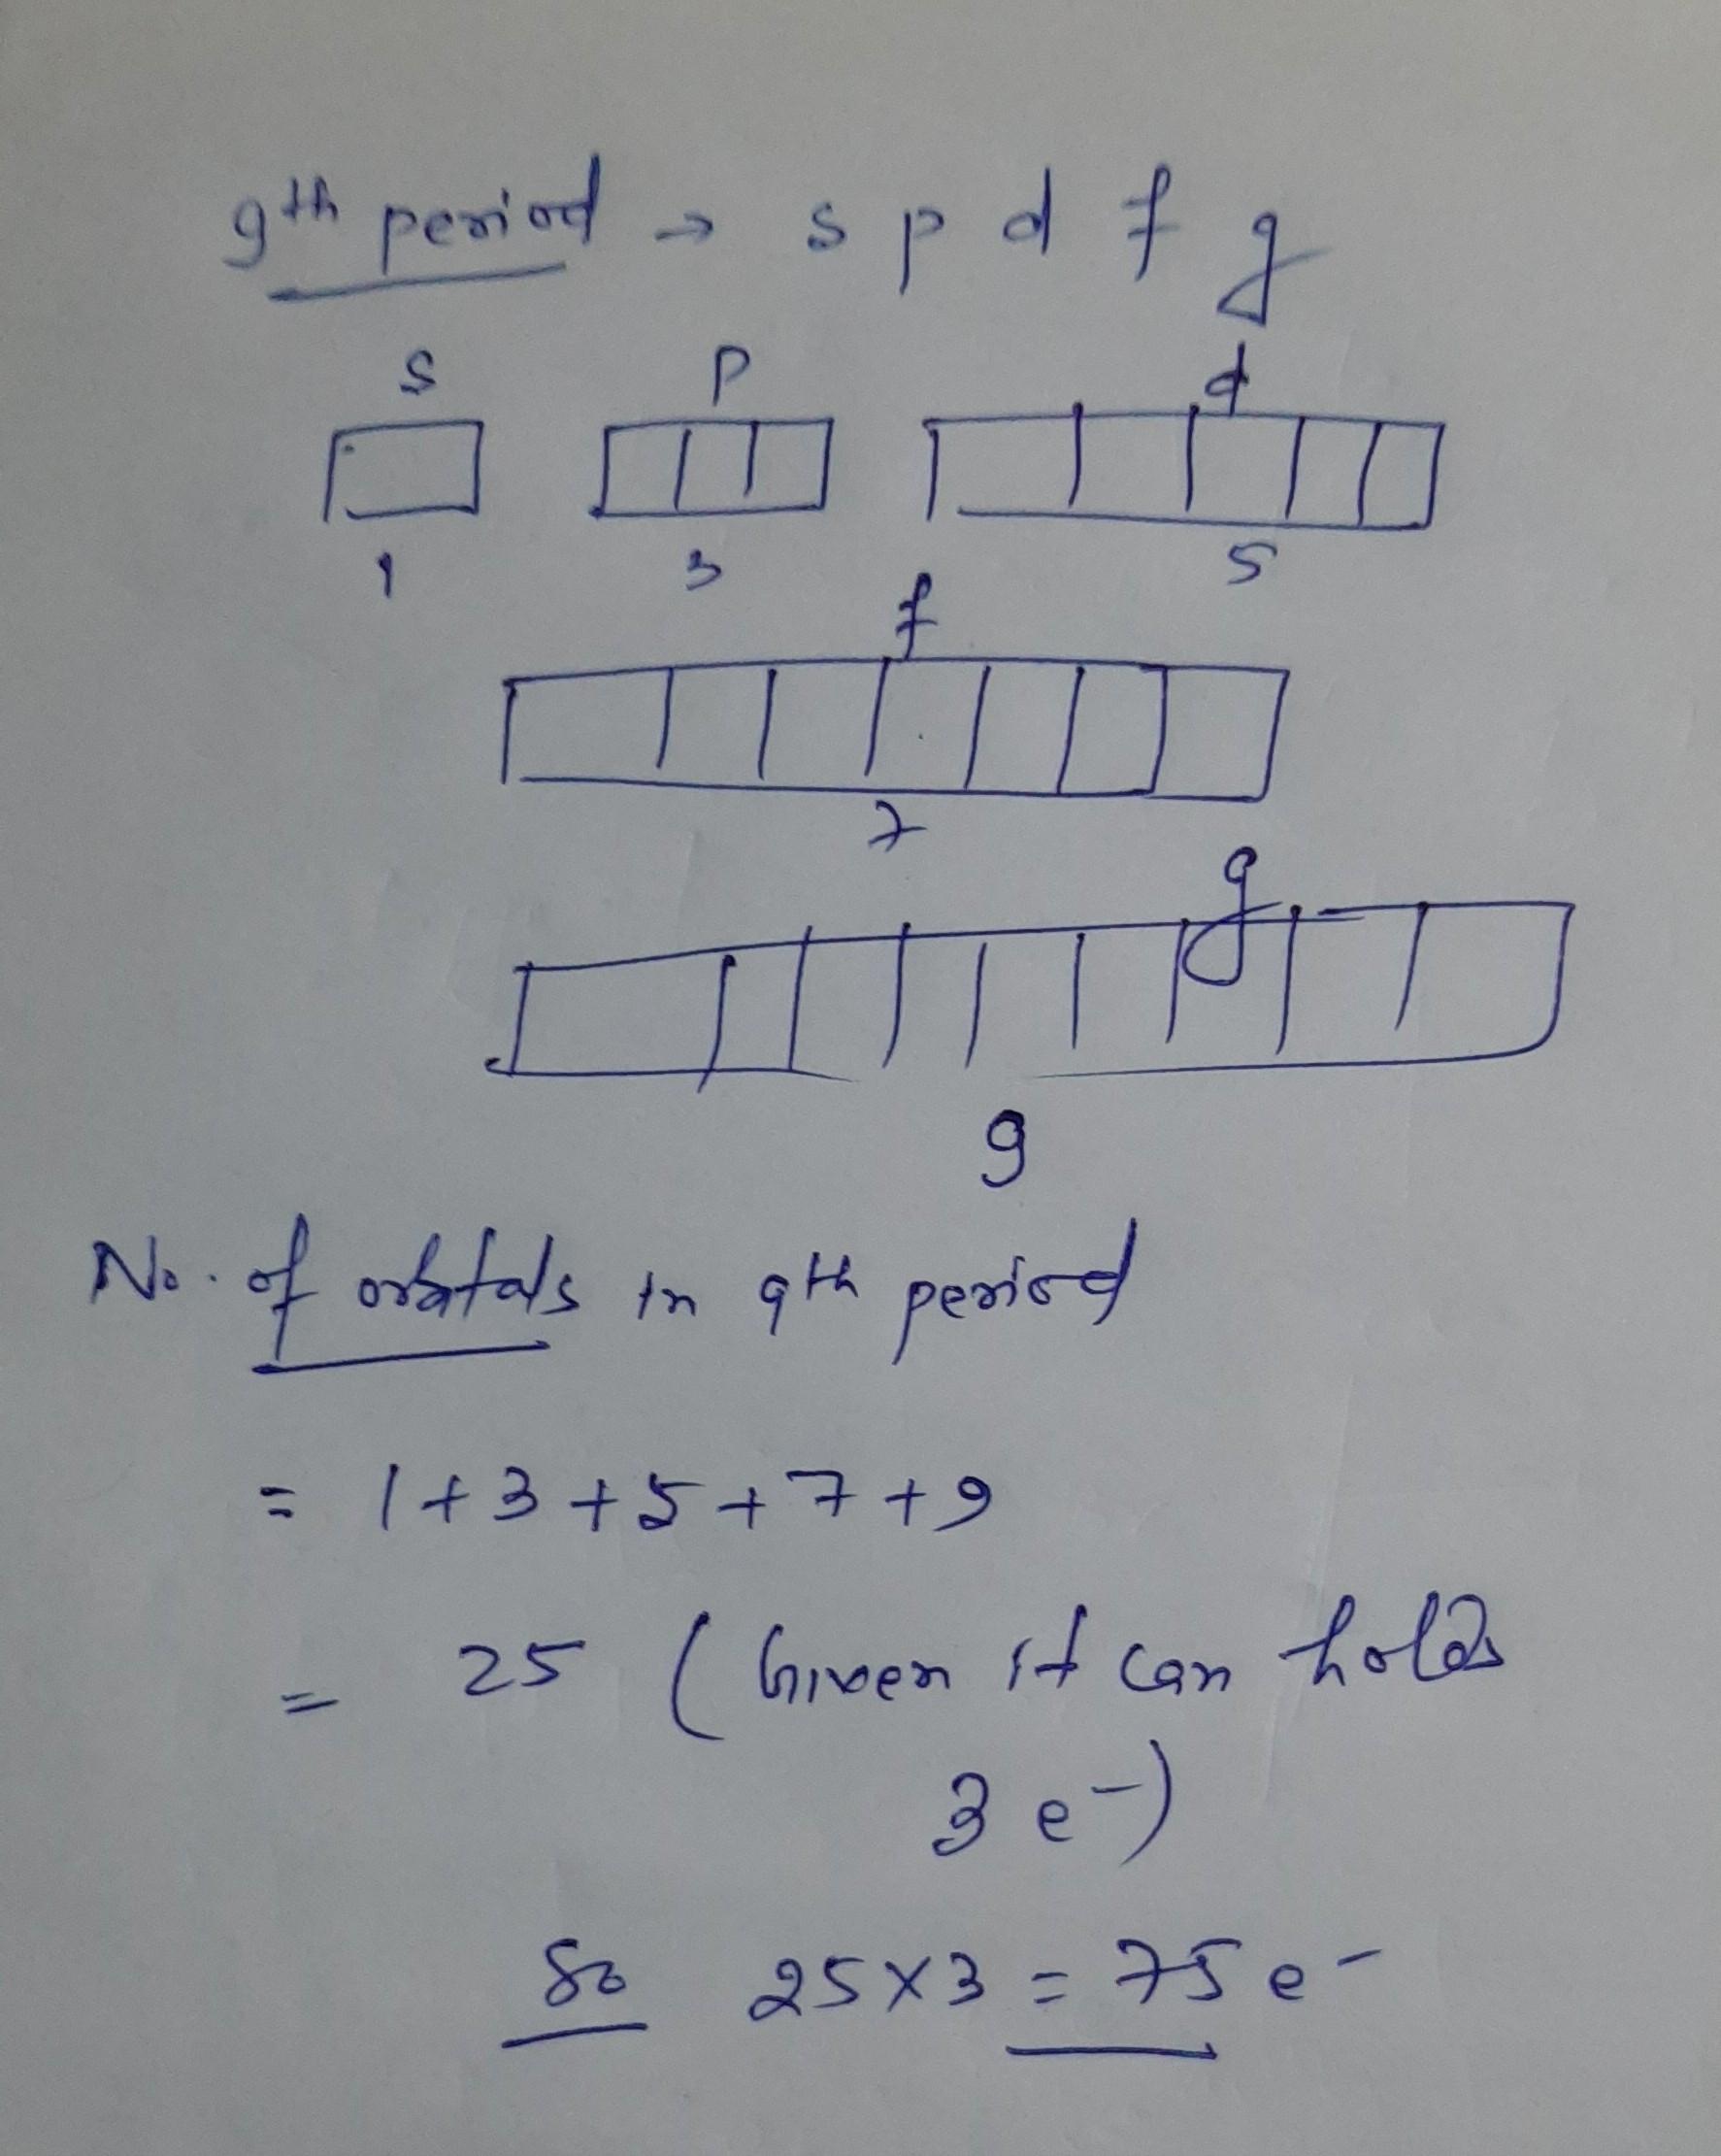 9th period → s p d f g
s p d
1 3 5
f
7
g
9
No. of orbitals in 9th period
= 1+3+5+7+9
= 25 (Given it can holds
3 e⁻)
So 25×3 = 75 e⁻